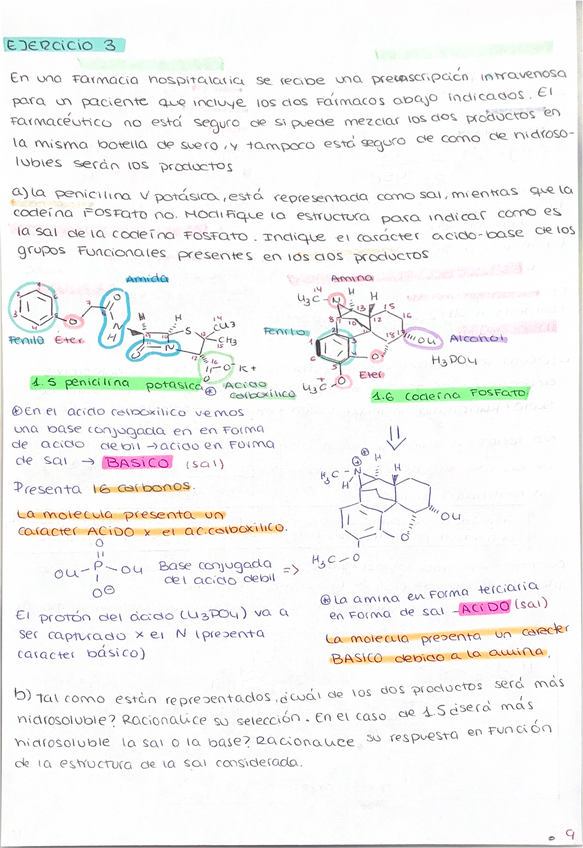 EJERCICIO 3
En una farmacia hospitalaria se recibe una prescripción intravenosa
para un paciente que incluye los dos fármacos abajo indicados. El
farmacéutico no está seguro de si puede mezclar los dos productos en
la misma botella de suero, y tampoco está seguro de como de hidroso-
lubles serán los productos
a) la penicilina V potásica, está representada como sal, mientras que la
codeína fosfato no. Modifique la estructura para indicar como es
la sal de la codeína fosfato. Indique el carácter acido-base de los
grupos funcionales presentes en los dos productos
Amida
Amina
Fenilo
Éter
Fenilo
Alcohol
H3PO4
Éter
1.5 penicilina potásica
Acido
carboxilico
1.6 codeína fosfato
En el acido carboxilico vemos
una base conjugada en en forma
de acido debil → acido en forma
de sal → BASICO (sal)
Presenta 16 carbonos.
La molecula presenta un
caracter ACIDO x el ac. carboxilico.
O
OH - P - OH
O⊖
Base conjugada
del acido debil =>
H3C - N
H
H
H
OH
O
H3C - O
El protón del ácido (H3PO4) va a
ser capturado x el N (presenta
caracter básico)
La amina en forma terciaria
en forma de sal - ACIDO (sal)
La molecula presenta un carecter
BASICO debido a la amina.
b) Tal como están representados, ¿cuál de los dos productos será más
hidrosoluble? Racionalice su selección. En el caso de 1.5 ¿será más
hidrosoluble la sal o la base? Racionalice su respuesta en función
de la estructura de la sal considerada.
9